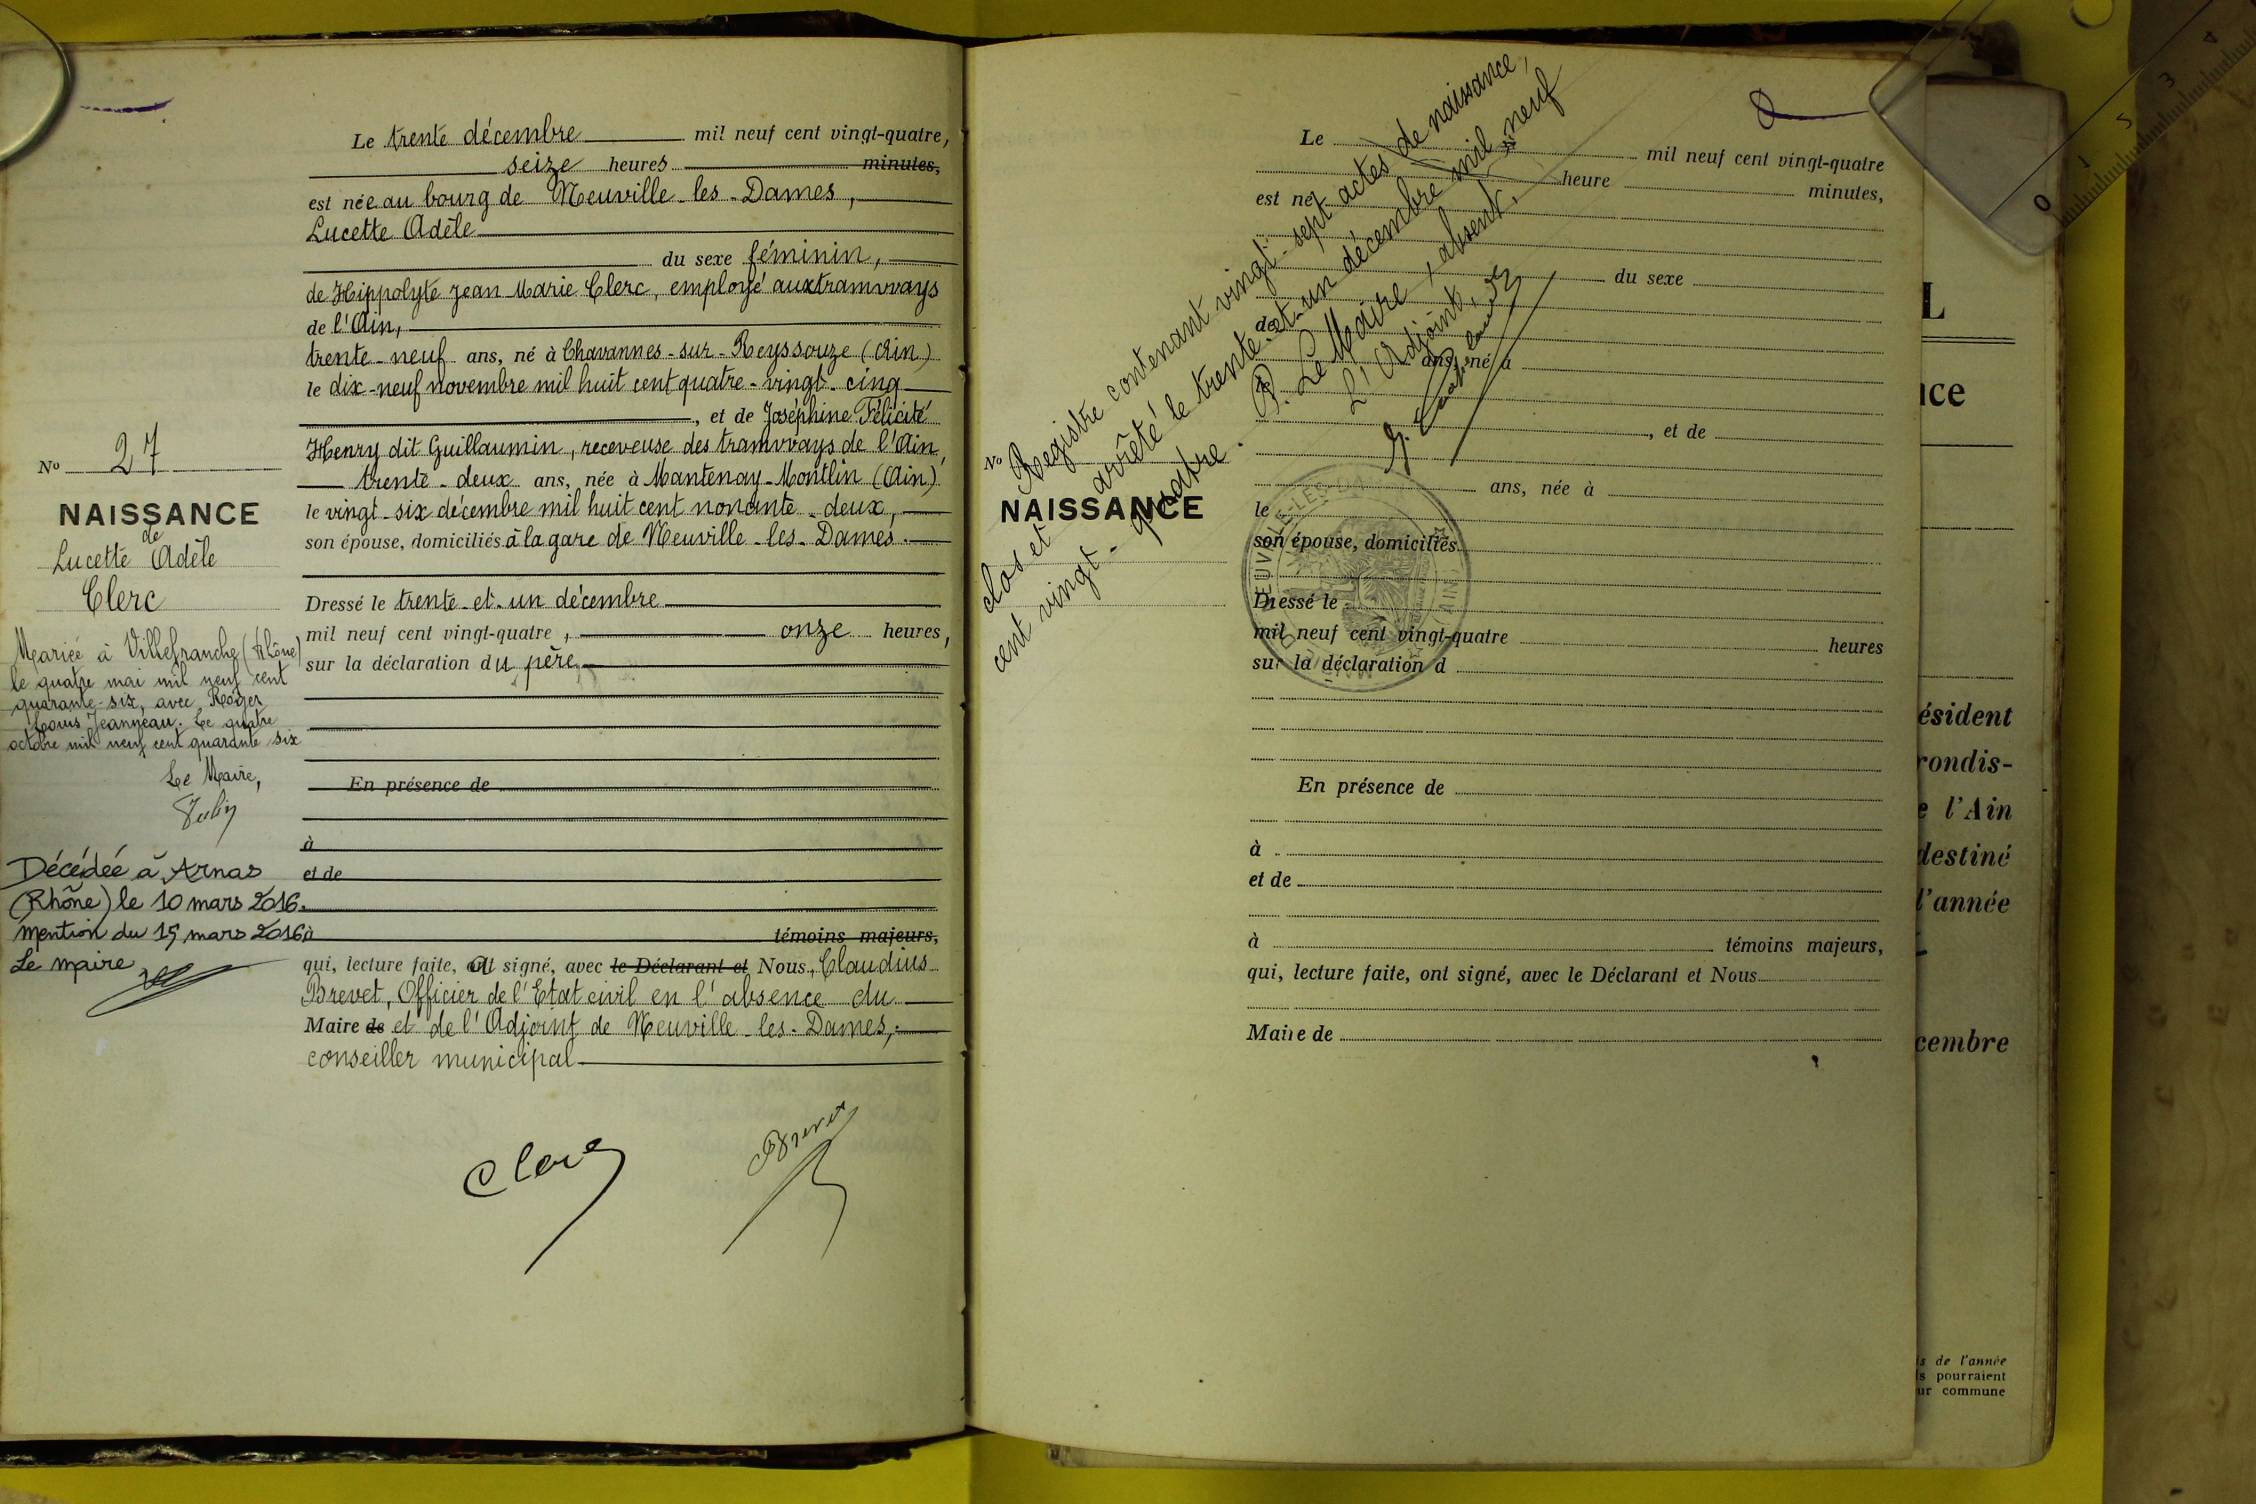 Le trente décembre mil neuf cent vingt-quatre,
seize heures minutes,
est née au bourg de Neuville-les-Dames,
Lucette Adèle
du sexe féminin,
de Hippolyte Jean Marie Clerc, employé aux tramways
de l'Ain,
trente-neuf ans, né à Chavannes-sur-Reyssouze (Ain)
le dix-neuf novembre mil huit cent quatre-vingt-cinq
, et de Joséphine Félicité
Henry dit Guillaumin, receveuse des tramways de l'Ain,
trente-deux ans, née à Mantenay-Montlin (Ain)
le vingt-six décembre mil huit cent nonante-deux,
son épouse, domiciliés à la gare de Neuville-les-Dames.
Dressé le trente-et-un décembre
mil neuf cent vingt-quatre, onze heures,
sur la déclaration du père
En présence de
à
et de
à témoins majeurs,
qui, lecture faite, a signé, avec le Déclarant et Nous, Claudius
Brevet, Officier de l'Etat civil en l'absence du
Maire de et de l'Adjoint de Neuville-les-Dames,
conseiller municipal
Clerc
Brevet
No 27
NAISSANCE
de
Lucette Adèle
Clerc
Mariée à Villefranche (Rhône)
le quatre mai mil neuf cent
quarante-six, avec Roger
Louis Jeanneau. Le quatre
octobre mil neuf cent quarante six
Le Maire,
Décédée à Arnas
(Rhône) le 10 mars 2016.
Mention du 15 mars 2016
Le maire
Registre contenant vingt-sept actes de naissance,
clos et arrêté le trente-et-un décembre mil neuf
cent vingt-quatre.
P. Le Maire, absent,
L'Adjoint,
No
NAISSANCE
Le mil neuf cent vingt-quatre
heure minutes,
est né
du sexe
de
ans, né à
le
, et de
ans, née à
le
son épouse, domiciliés
Dressé le
mil neuf cent vingt-quatre heures
sur la déclaration d
En présence de
à
et de
à témoins majeurs,
qui, lecture faite, ont signé, avec le Déclarant et Nous
Maire de
MAIRIE DE NEUVILLE-LES-DAMES (AIN)
L
nce
ésident
rondis-
e l'Ain
destiné
l'année
cembre
s de l'année
s pourraient
ur commune
0 1 2 3 4